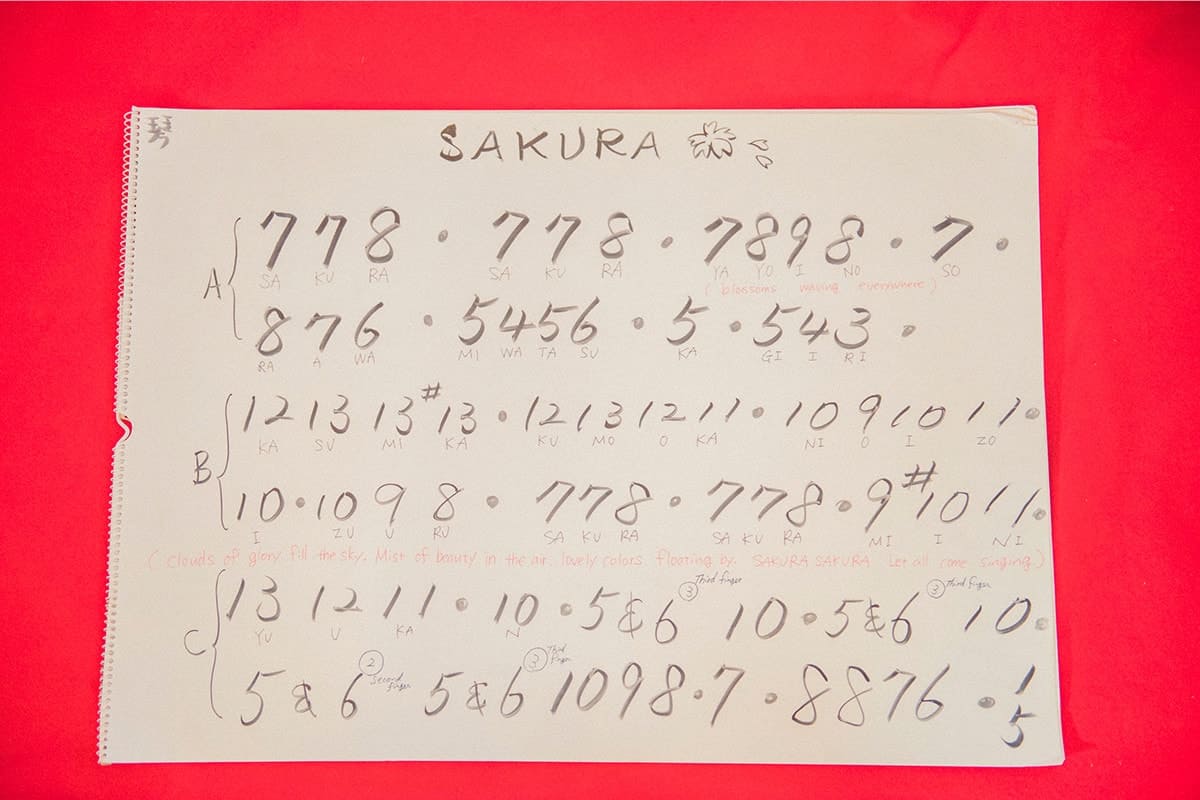 琴
SAKURA
A 7 7 8 • 7 7 8 • 7 8 9 8 • 7 •
SA KU RA SA KU RA YA YO I NO SO
(blossoms waving everywhere)
8 7 6 • 5 4 5 6 • 5 • 5 4 3 •
RA A WA MI WA TA SU KA GI I RI
B 12 13 13 #13 • 12 13 12 11 • 10 9 10 11 •
KA SU MI KA KU MO O KA NI O I ZO
10 • 10 9 8 • 7 7 8 • 7 7 8 • 9 #10 11 •
I ZU U RU SA KU RA SA KU RA MI I NI
(Clouds of glory fill the sky. Mist of beauty in the air. lovely colors floating by. SAKURA SAKURA Let all come singing.)
C 13 12 11 • 10 • 5 & 6 ③ Third finger 10 • 5 & 6 ③ Third finger 10 •
YU U KA N
5 & 6 ② Second finger 5 & 6 ③ Third finger 10 9 8 • 7 • 8 8 7 6 • 1
5